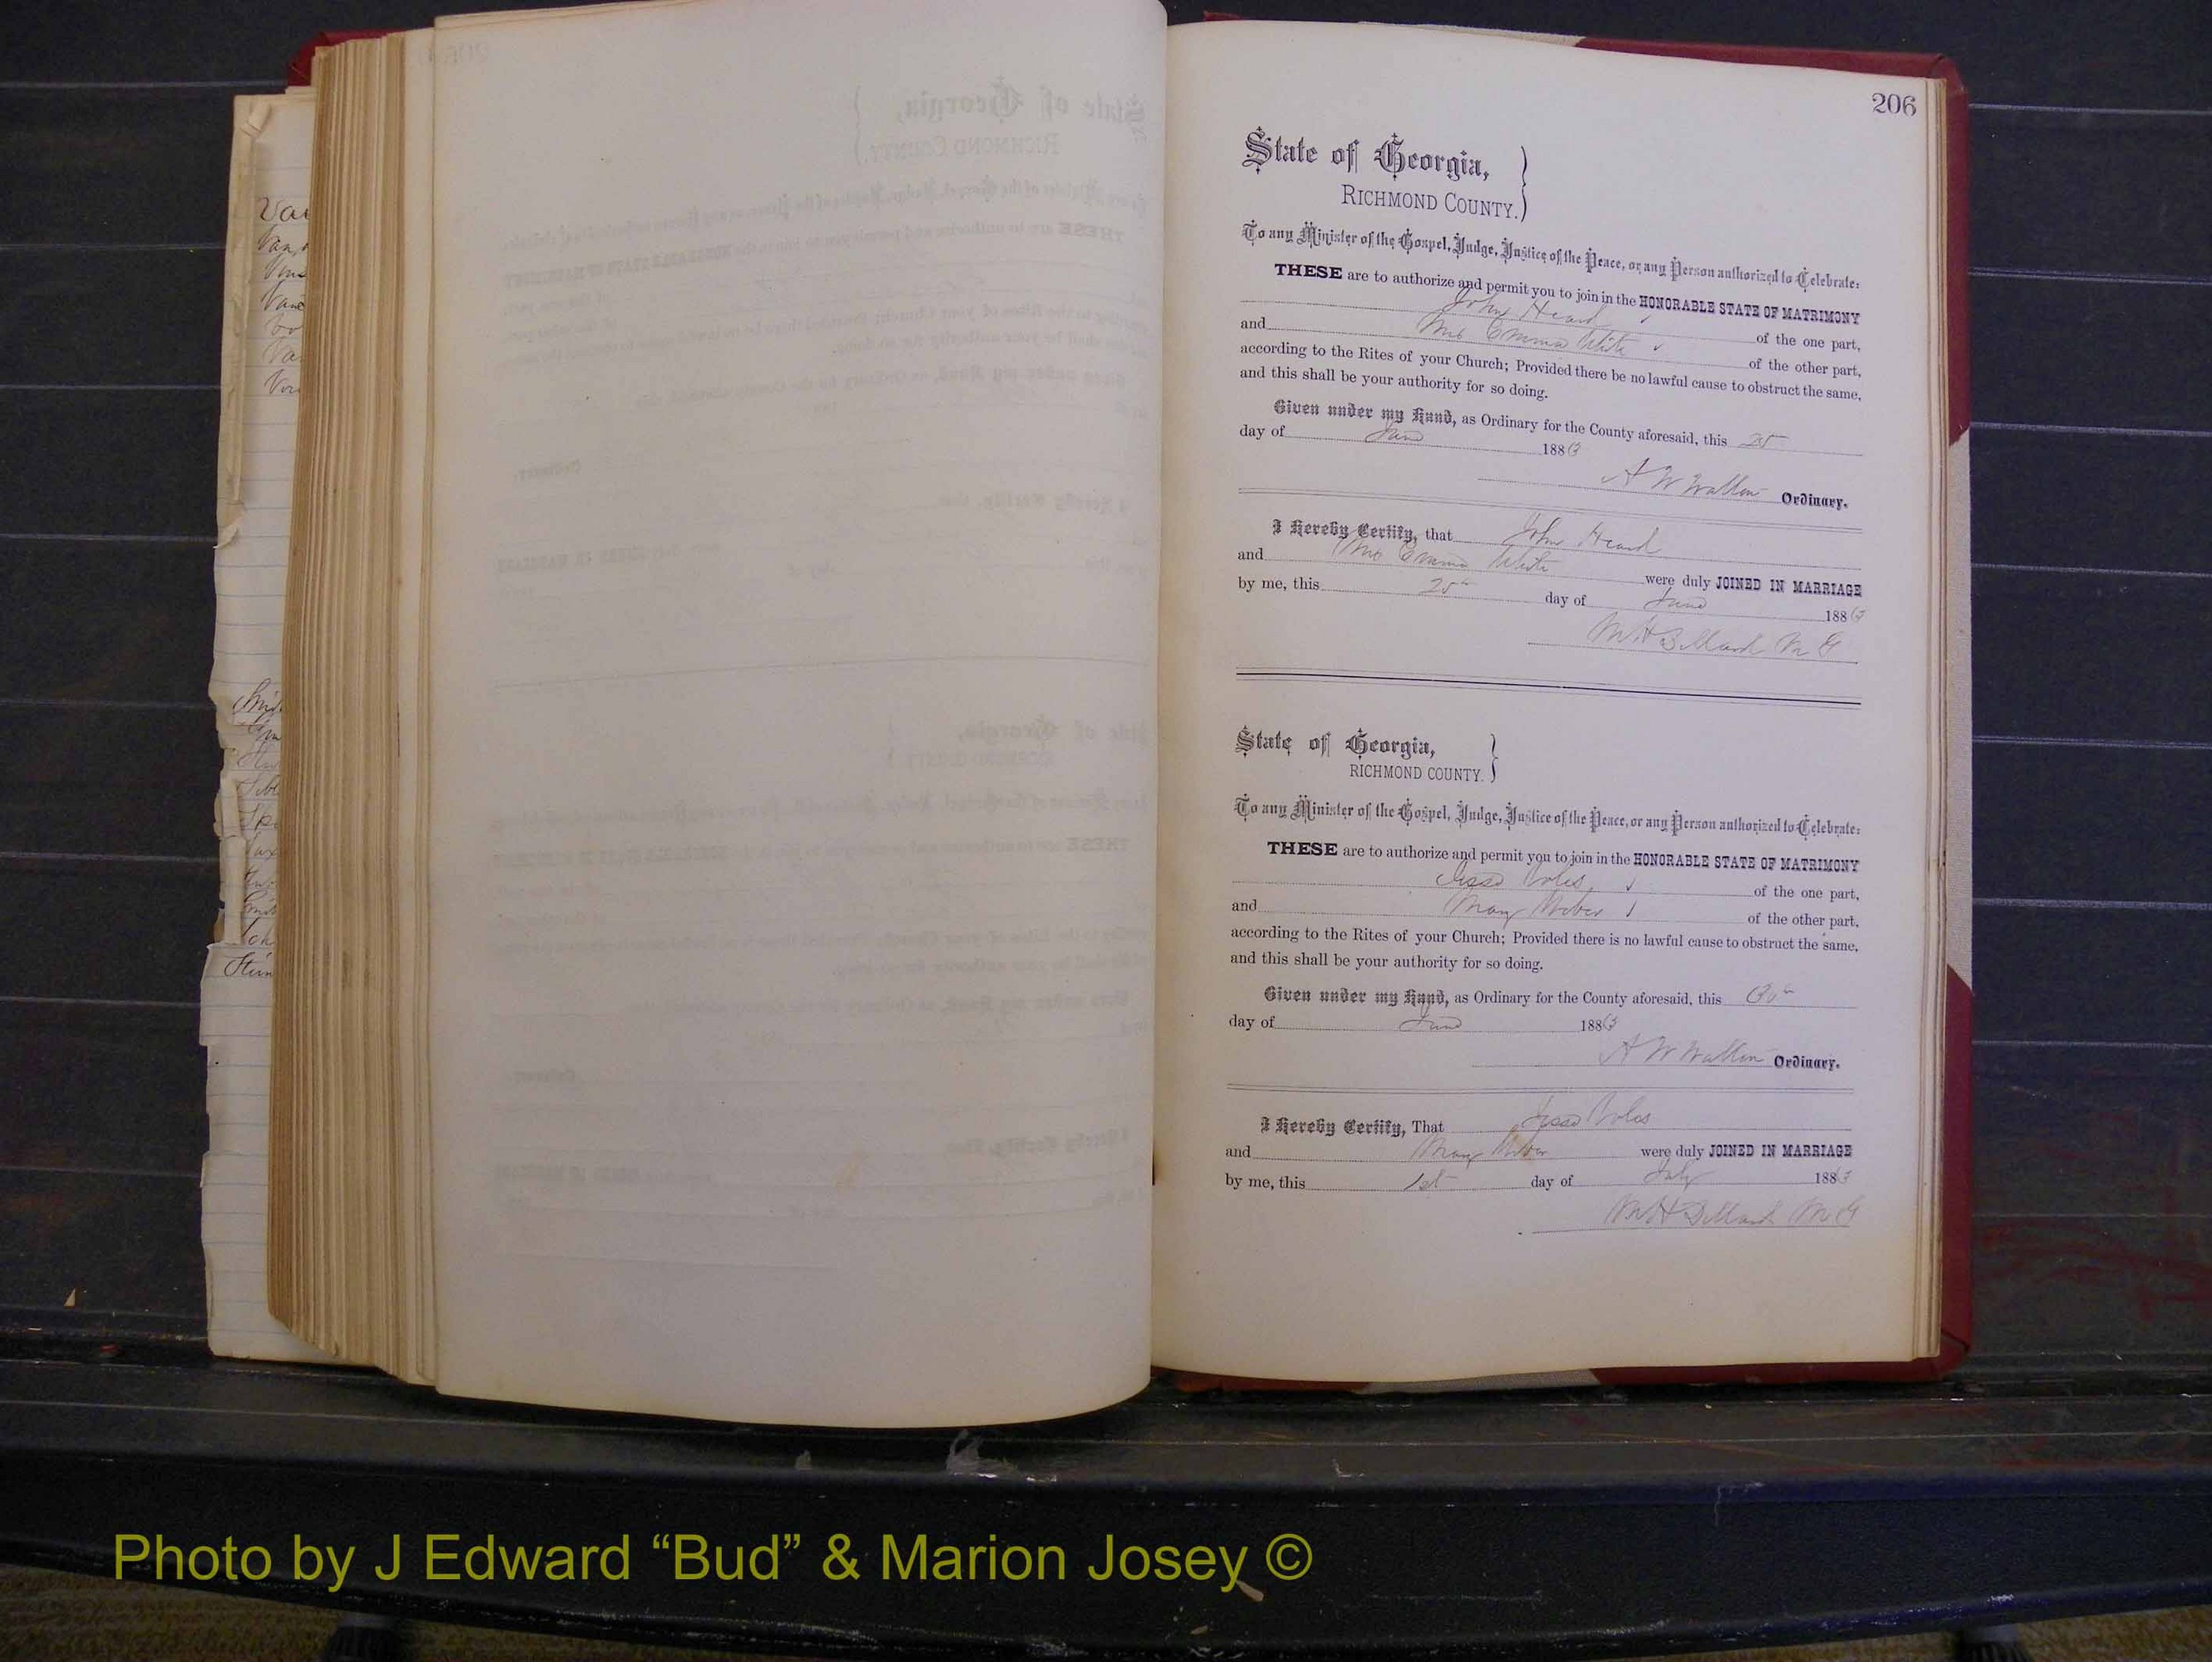 206
State of Georgia,
RICHMOND COUNTY.
To any Minister of the Gospel, Judge, Justice of the Peace, or any Person authorized to Celebrate:
THESE are to authorize and permit you to join in the HONORABLE STATE OF MATRIMONY
John Heard of the one part,
and Mrs Emma White of the other part,
according to the Rites of your Church; Provided there be no lawful cause to obstruct the same,
and this shall be your authority for so doing.
Given under my Hand, as Ordinary for the County aforesaid, this 25
day of June 1883
A W Walton Ordinary.
I Hereby Certify, that John Heard
and Mrs Emma White were duly JOINED IN MARRIAGE
by me, this 25th day of June 1883
M G
State of Georgia,
RICHMOND COUNTY.
To any Minister of the Gospel, Judge, Justice of the Peace, or any Person authorized to Celebrate:
THESE are to authorize and permit you to join in the HONORABLE STATE OF MATRIMONY
Jesse of the one part,
and Mary of the other part,
according to the Rites of your Church; Provided there is no lawful cause to obstruct the same,
and this shall be your authority for so doing.
Given under my Hand, as Ordinary for the County aforesaid, this 30th
day of June 1883
A W Walton Ordinary.
I Hereby Certify, That Jesse
and Mary were duly JOINED IN MARRIAGE
by me, this 1st day of July 1883
M G
Photo by J Edward “Bud” & Marion Josey ©